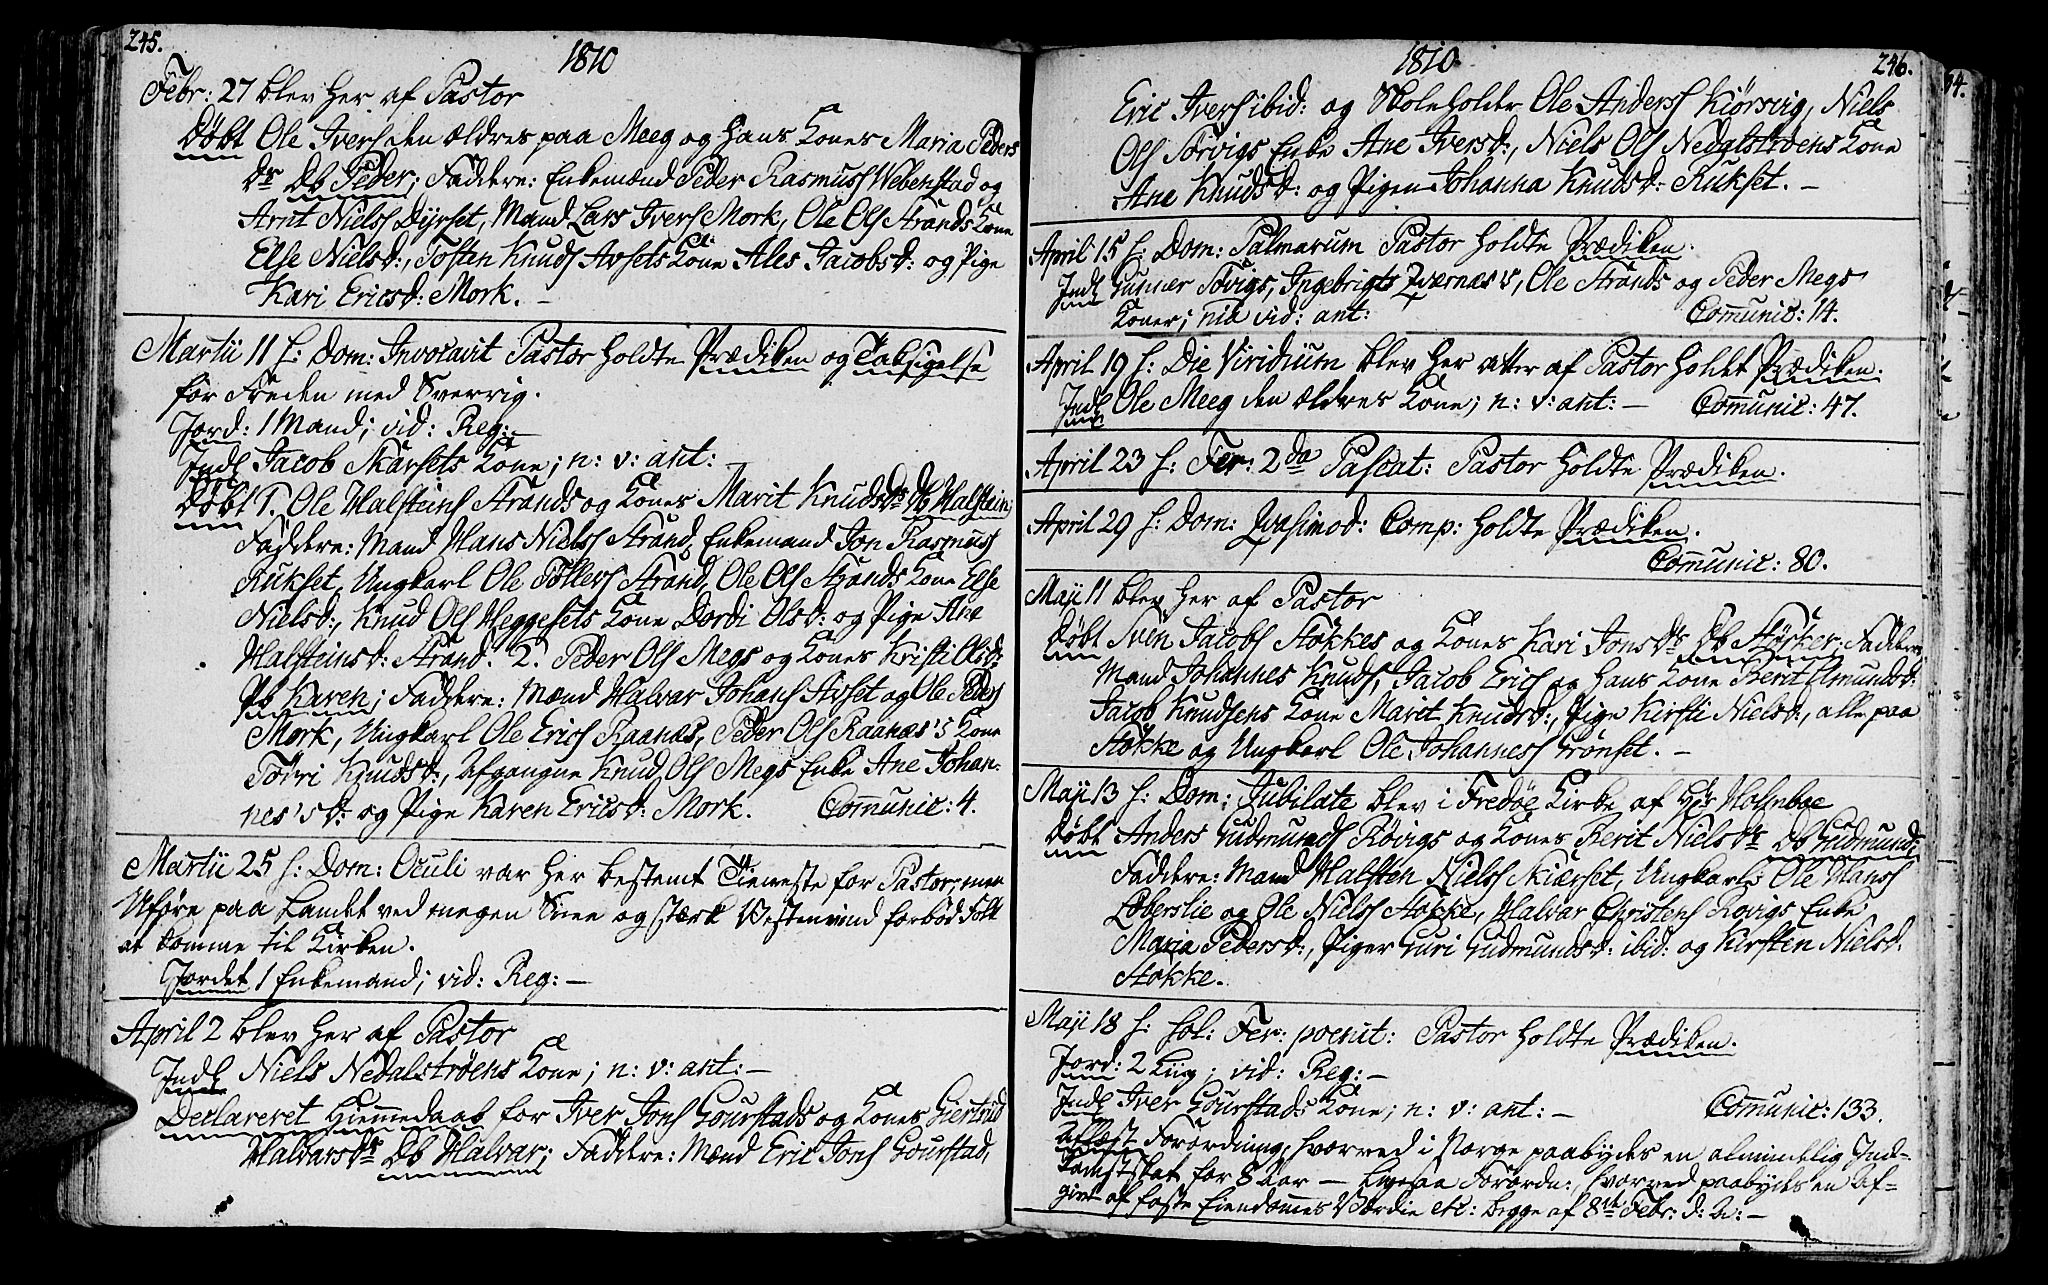 245.
1810
Febr: 27 blev her af Pastor
Døbt Ole Ivers: den ældres paa Meeg og hans Kones Maria Peders
Dr Db Peder; Faddere: Enkemænd Peder Rasmuss Webenstad og
Arnt Nielss Dyrset, Mand Lars Ivers Mork, Ole Ols Strands Kone
Else Nielsd:, Tosten Knuds Avsets Kone Ales Jacobsd: og Pige
Kari Ericsd: Mork. –
Martii 11 f: Dom: Invocavit Pastor holdte Prædiken og Taksigelse
for Freden med Sverrig.
Jord: 1 Mand; vid: Reg: –
Indl Jacob Skarsets Kone; n: v: ant: –
Døbt 1. Ole Halsteins Strands og Kones Marit Knudsdr Db Halstein;
Faddere: Mand Hans Nielss Strand, Enkemand Jon Rasmuss
Rukset, Ungkarl Ole Tollers Strand, Ole Ols Strands Kone Else
Nielsd:, Knud Ols Heggesets Kone Dordi Olsd: og Pige Ane
Halsteinsd: Strand. 2. Peder Ols Megs og Kones Kristi Olsd:
Pb Karen; Faddere: Mænd Halvar Johans Avset og Ole Peders
Mork, Ungkarl Ole Erics Raanæs, Peder Ols Raanæs's Kone
Todri Knudsd:, Afgangne Knud Ols Megs Enke Ane Johan-
nes's d: og Pige Karen Ericsd: Mork. Comunic: 4.
Martii 25 f: Dom: Oculi var her bestemt Tieneste for Pastor; men
Uføre paa Landet ved megen Snee og stærk Vestenvind forbød Folk
at komme til Kirken.
Jordet 1 Enkemand; vid: Reg: –
April 2 blev her af Pastor
Indl Niels Nedalstrøens Kone; n: v: ant: –
Declareret Hiemmedaab for Iver Jons Gourstads og Kones Giertrud
Halvarsdr Db Halvar; Faddere: Mænd Eric Jons Gourstad,
1810.
246.
Eric Ivers ibid: og Skoleholder Ole Anderss Kiørsvig, Niels
Ols Sørvigs Enke Ane Iversd:, Niels Ols Nedalstrøens Kone
Ane Knudsd: og Pigen Johanna Knudsd: Rukset. –
April 15 f: Dom: Palmarum Pastor holdte Prædiken.
Indl Gunner Søvigs, Ingebrigts Qværnæs's, Ole Strands og Peder Megs
Koner; nia vid: ant: Comunic: 14.
April 19 f: Die Viridium blev her atter af Pastor holdet Prædiken.
Indl Ole Meeg den ældres Kone; n: v: ant: – Comunic: 47.
April 23 f: Fer: 2da Pascat: Pastor holdte Prædiken.
April 29 f: Dom: Qvasimod: Comp: holdte Prædiken.
Comunic: 80.
Maji 11 blev her af Pastor
Døbt Svin Jacobs Stokkes og Kones Kari Jonsdr Db Størker; Faddere
Mand Johannes Knuds, Jacob Erics og hans Kone Berit Amundsd:
Jacob Knudsens Kone Maret Knudsd:, Pige Kirsti Nielsd:, alle paa
Stokke og Ungkarl Ole Johanness Grønset. –
Maji 13 f: Dom: Jubilate blev i Fredøe Kirke af Hr Holmboe
Døbt Anders Gudmunds Røvigs og Kones Berit Nielsdr Db Gudmund;
Faddere: Mand Halsten Nielss Skiærset, Ungkarle Ole Hanss
Loberslie og Ole Nielss Stokke, Halvar Christens Rovigs Enke
Maria Pedersd:, Piger Guri Gudmundsd: ibid: og Kirsten Nielsd:
Stokke.
Maji 18 f: sol: Fer: poenit: Pastor holdte Prædiken.
Jord: 2 Liig; vid: Reg: –
Indl Iver Gourstads Kone; n: v: ant: – Comunic: 133.
Aflæst Forordning, hvorved i Norge paabydes en almindelig Ind-
komstskat for 8 Aar – Ligesaa Forordn:, hvorved paabydes en Af-
givt af faste Eiendommes Værdie etc: begge af 8de Febr: d: A: –